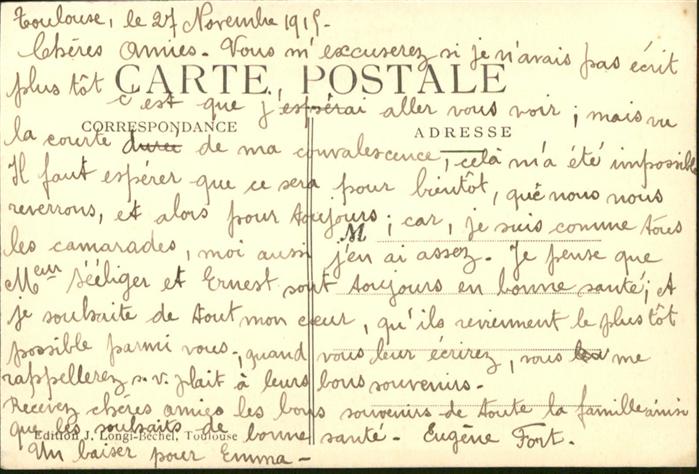 Toulouse, le 27 Novembre 1915.
Chères Amies. Vous m'excuserez si je n'avais pas écrit
plus tôt
CARTE POSTALE
c'est que j'espérai aller vous voir ; mais vu
CORRESPONDANCE
ADRESSE
la courte durée de ma convalescence, celà m'a été impossible
Il faut espérer que ce sera pour bientôt, que nous nous
reverrons, et alors pour toujours ; car, je suis comme tous
M
les camarades, moi aussi j'en ai assez. Je pense que
Meur Sééliger et Ernest sont toujours en bonne santé ; et
je souhaite de tout mon cœur, qu'ils reviennent le plus tôt
possible parmi vous, quand vous leur écrirez, vous me
rappellerez s.v. plait à leurs bons souvenirs.
Recevez chères amies les bons souvenirs de toute la famille ainsi
que les souhaits de bonne santé. Eugène Fort.
Edition J. Longi-Béchel, Toulouse
Un baiser pour Emma.